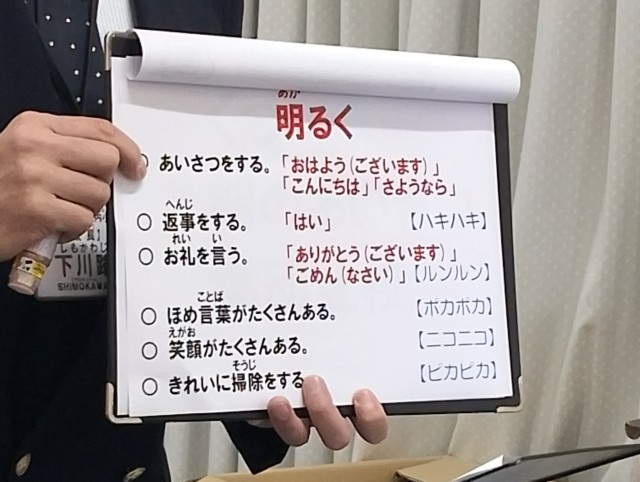 あか
明るく
○ あいさつをする。「おはよう(ございます)」
「こんにちは」「さようなら」
へんじ
○ 返事をする。「はい」【ハキハキ】
れい い
○ お礼を言う。「ありがとう(ございます)」
「ごめん(なさい)」【ルンルン】
ことば
○ ほめ言葉がたくさんある。【ポカポカ】
えがお
○ 笑顔がたくさんある。【ニコニコ】
そうじ
○ きれいに掃除をする【ピカピカ】
しもかわじ
下川
SHIMOKAWA